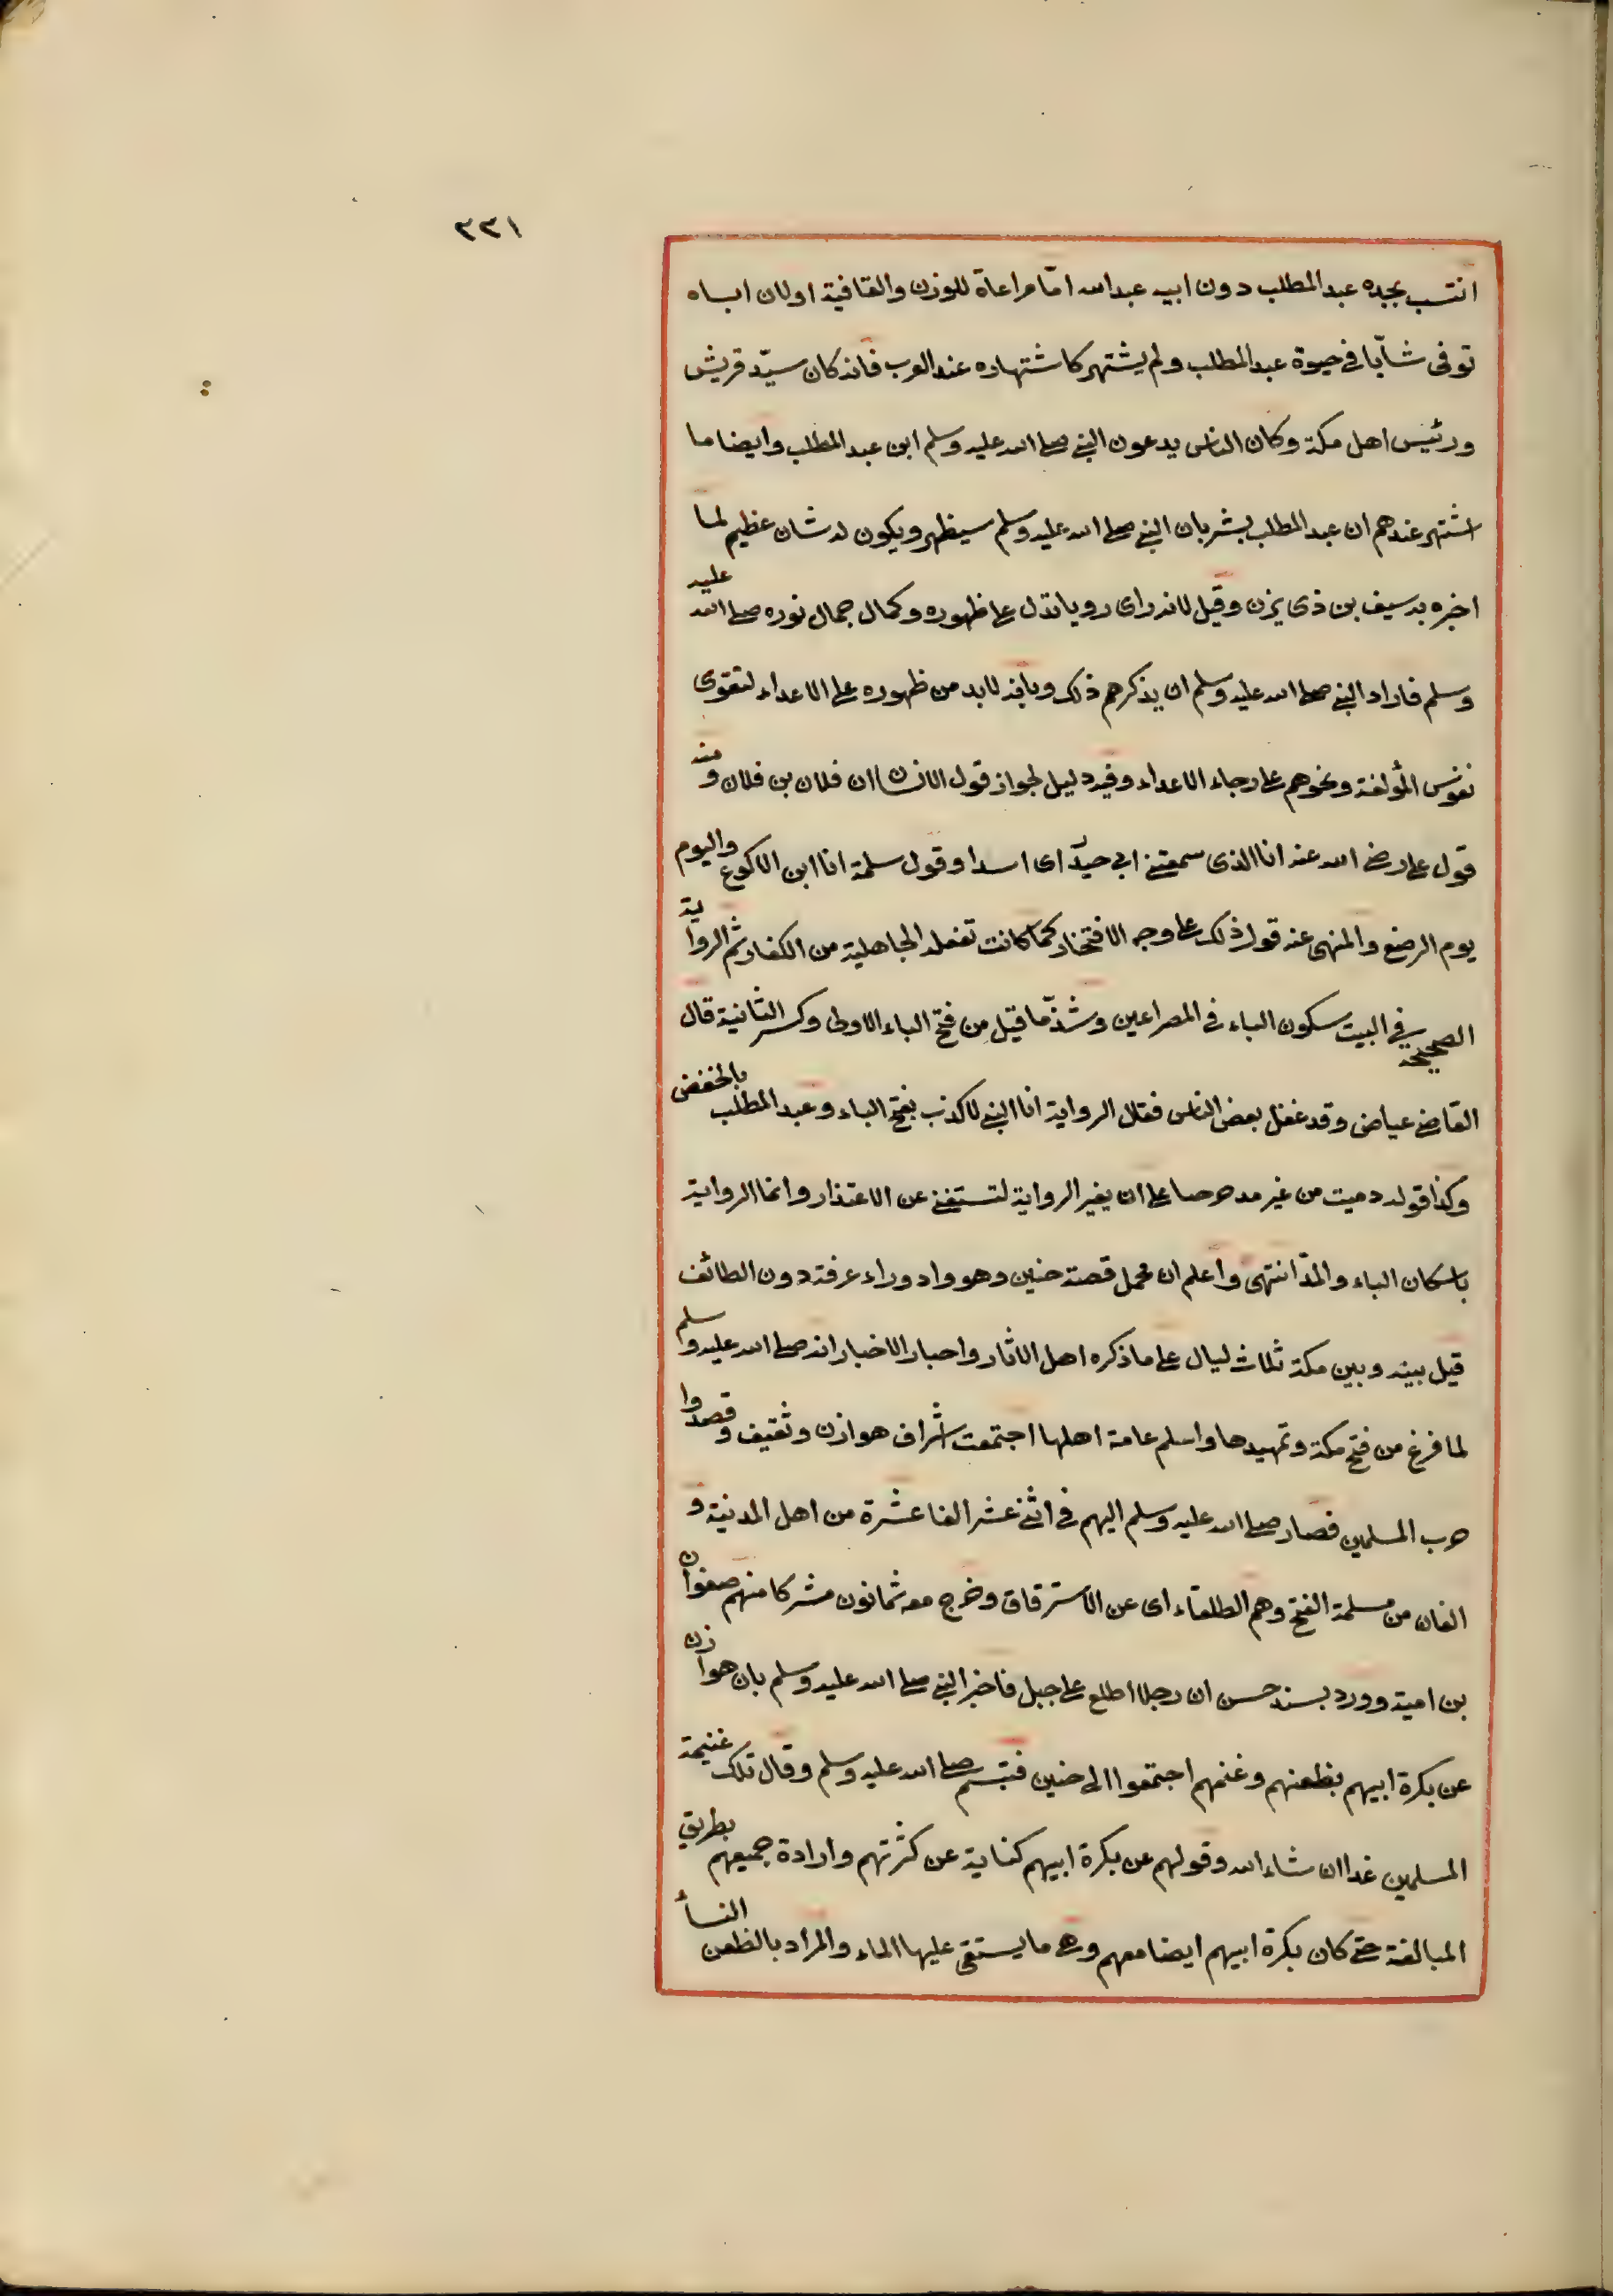 ٢٣١
انتسب بجده عبد المطلب دون ابيه عبد الله امّا مراعاة للوزن والقافية اولان اباه
توفى شابّا في حيوة عبد المطلب ولم يشتهر كاشتهاره عند العرب فانه كان سيّد قريش
ورئيس اهل مكة وكان الناس يدعون النبي صلى الله عليه وسلم ابن عبد المطلب وايضا ما
اشتهر عندهم ان عبد المطلب بشر بان النبي صلى الله عليه وسلم سيظهر ويكون له شان عظيم لما
اخبره به سيف بن ذى يزن وقيل لانه راى رويا تدل على ظهوره وكمال جمال نوره صلى الله عليه
وسلم فاراد النبي صلى الله عليه وسلم ان يذكرهم ذلك وبانه لابد من ظهوره على الاعداء لتقوى
نفوس المؤلفة ونحوهم على رجاء الاعداء وفيه دليل لجواز قول الانسان ان فلان بن فلان ومنه
قول على رضي الله عنه انا الذى سمتني امي حيدرة اى اسدا وقول سلمة انا ابن الاكوع واليوم
يوم الرضع والمنهى عنه قول ذلك على وجه الافتخار كما كانت تفعله الجاهلية من الكفار ثم الرواية
الصحيحة في البيت سكون الباء في المصراعين وشذّ ما قيل من فتح الباء الاولى وكسر الثانية قال
القاضي عياض وقد غفل بعض الناس فقال الرواية انا النبي لا كذب بفتح الباء وعبد المطلب بالخفض
وكذا قوله دميت من غير مد حرصا على ان يغير الرواية لتستغني عن الاعتذار وانما الرواية
باسكان الباء والمدّ انتهى واعلم ان مجمل قصة حنين وهو واد وراء عرفة دون الطائف
قيل بينه وبين مكة ثلاث ليال على ما ذكره اهل الاثار واحبار الاخبار انه صلى الله عليه وسلم
لما فرغ من فتح مكة وتمهيدها واسلم عامة اهلها اجتمعت اشراف هوازن وثقيف وقصدوا
حرب المسلمين فصار صلى الله عليه وسلم اليهم في اثني عشر الفا عشرة من اهل المدنية و
الفان من مسلمة الفتح وهم الطلقاء اى عن الاسترقاق وخرج معه ثمانون مشركا منهم صفوان
بن امية وورد بسند حسن ان رجلا اطلع على جبل فاخبر النبي صلى الله عليه وسلم بان هوازن
عن بكرة ابيهم بظعنهم وغنمهم اجتمعوا الى حنين فتبسم صلى الله عليه وسلم وقال تلك غنيمة
المسلمين غدا ان شاء الله وقولهم عن بكرة ابيهم كناية عن كثرتهم وارادة جميعهم بطريق
المبالغة حتى كان بكرة ابيهم ايضا معهم وهى ما يستقى عليها الماء والمراد بالظعن النساء